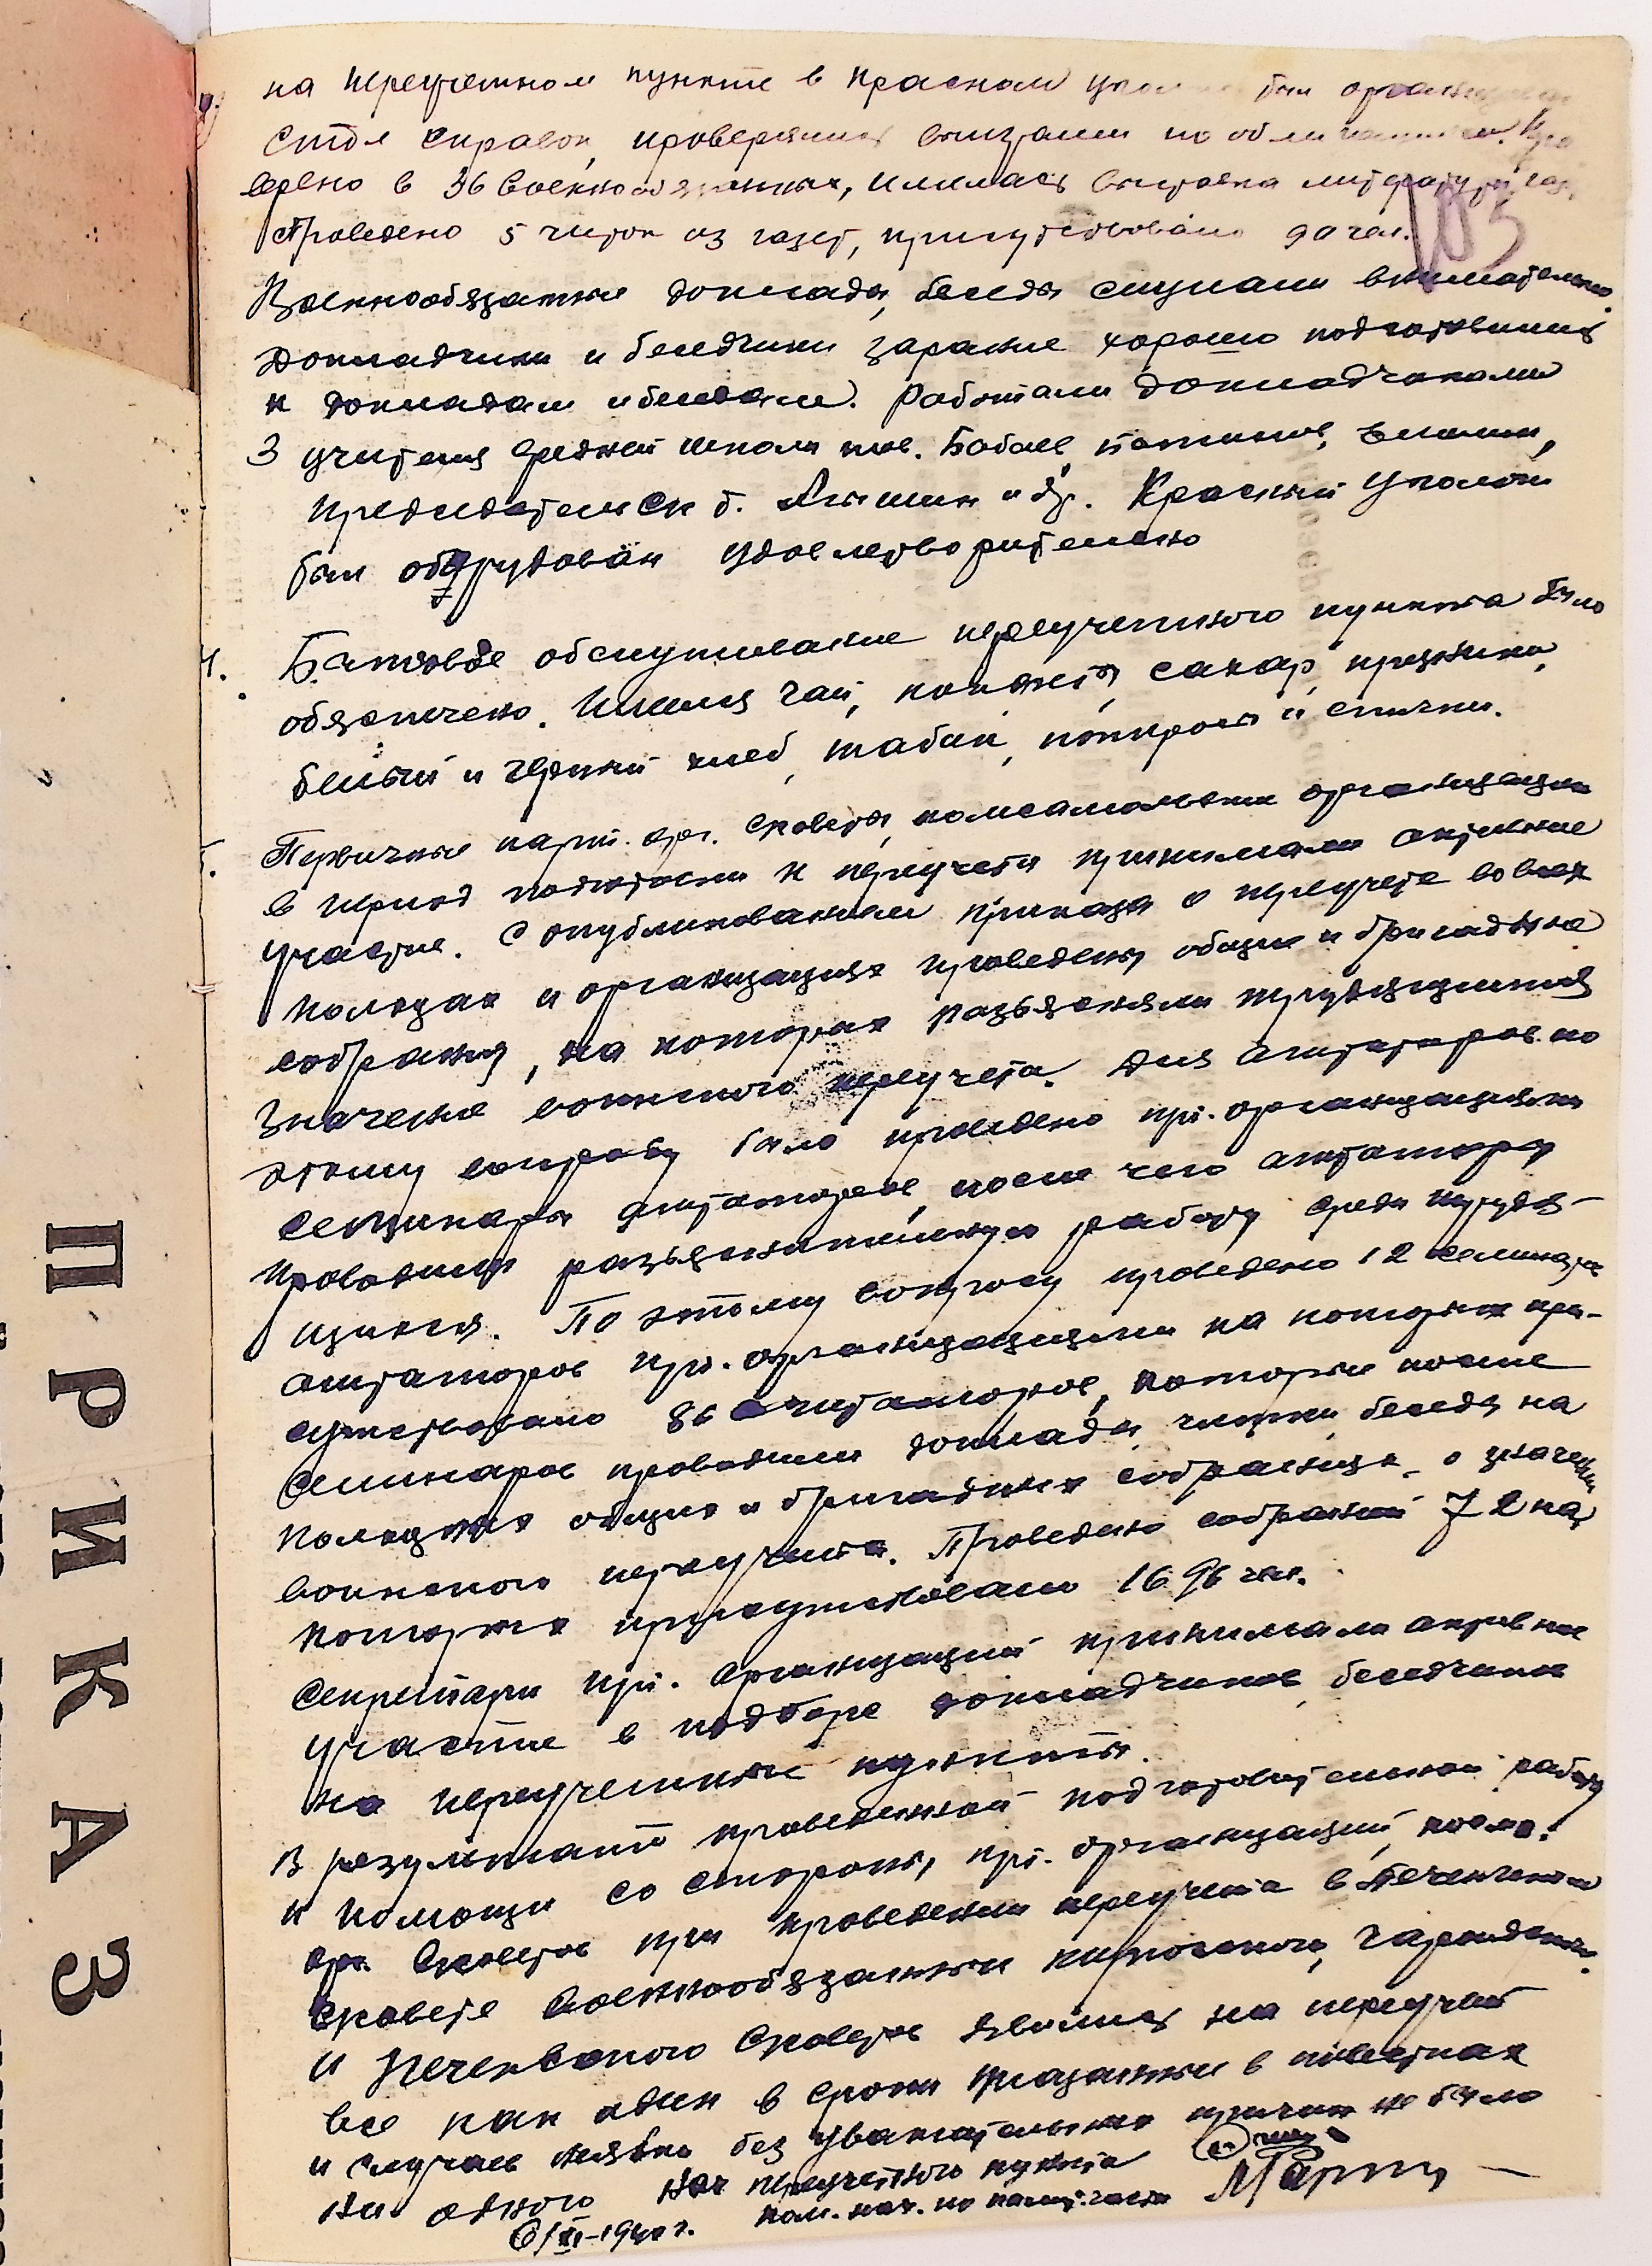 на переучетном пункте в красном был
стол справок, проверялись по
верено в 36 военнообязанных, имелась выставка литературы,
Проведено 5 читок из газет, присутствовало 90 чел.
185
Военнообязанные доклады, беседы слушали внимательно.
Докладчики и беседчики заранее хорошо подготовились
к докладам и беседам. Работали докладчиками
3 учителя средней школы тов. Бабаев
председатель с/с т. и др. Красный уголок
был оборудован удовлетворительно
4. Бытовое обслуживание переучетного пункта было
обеспечено. Имелся чай, конфеты, сахар, пряники,
белый и черный хлеб, табак, папиросы и спички.
5. Первичные парт. орг. с/совета, комсомольские организации
в период подготовки к переучету принимали активное
участие. С опубликованием приказа о переучете во всех
колхозах и организациях проведены общие и бригадные
собрания, на которых разъясняли трудящимся
значение воинского переучета. Для агитаторов по
этому вопросу было проведено пр. организациями
семинары агитаторов, после чего агитаторы
проводили разъяснительную работу среди трудя-
щихся. По этому вопросу проведено 12 семинаров
агитаторов пр. организациями на которых при-
сутствовало 86 агитаторов, которые после
семинаров проводили доклады, читки, беседы на
колхозных общих и бригадных собраниях о значении
воинского переучета. Проведено собраний 72 на
которых присутствовало 1696 чел.
Секретари пр. организаций принимали активное
участие в подборе докладчиков, беседчиков
на переучетные пункты.
В результате проведенной подготовительной работы
и помощи со стороны пр. организаций, комс.
орг. с/советов при проведении переучета в Печенгском
с/совете военнообязанные
и Печенгского с/советов явились на переучет
все как один в сроки указанные в повестках
и случаев неявки без уважительных причин не было
ни одного Нач переучетного пункта
6/XI-1940 г. пом. нач. по полит. части
ПРИКАЗ